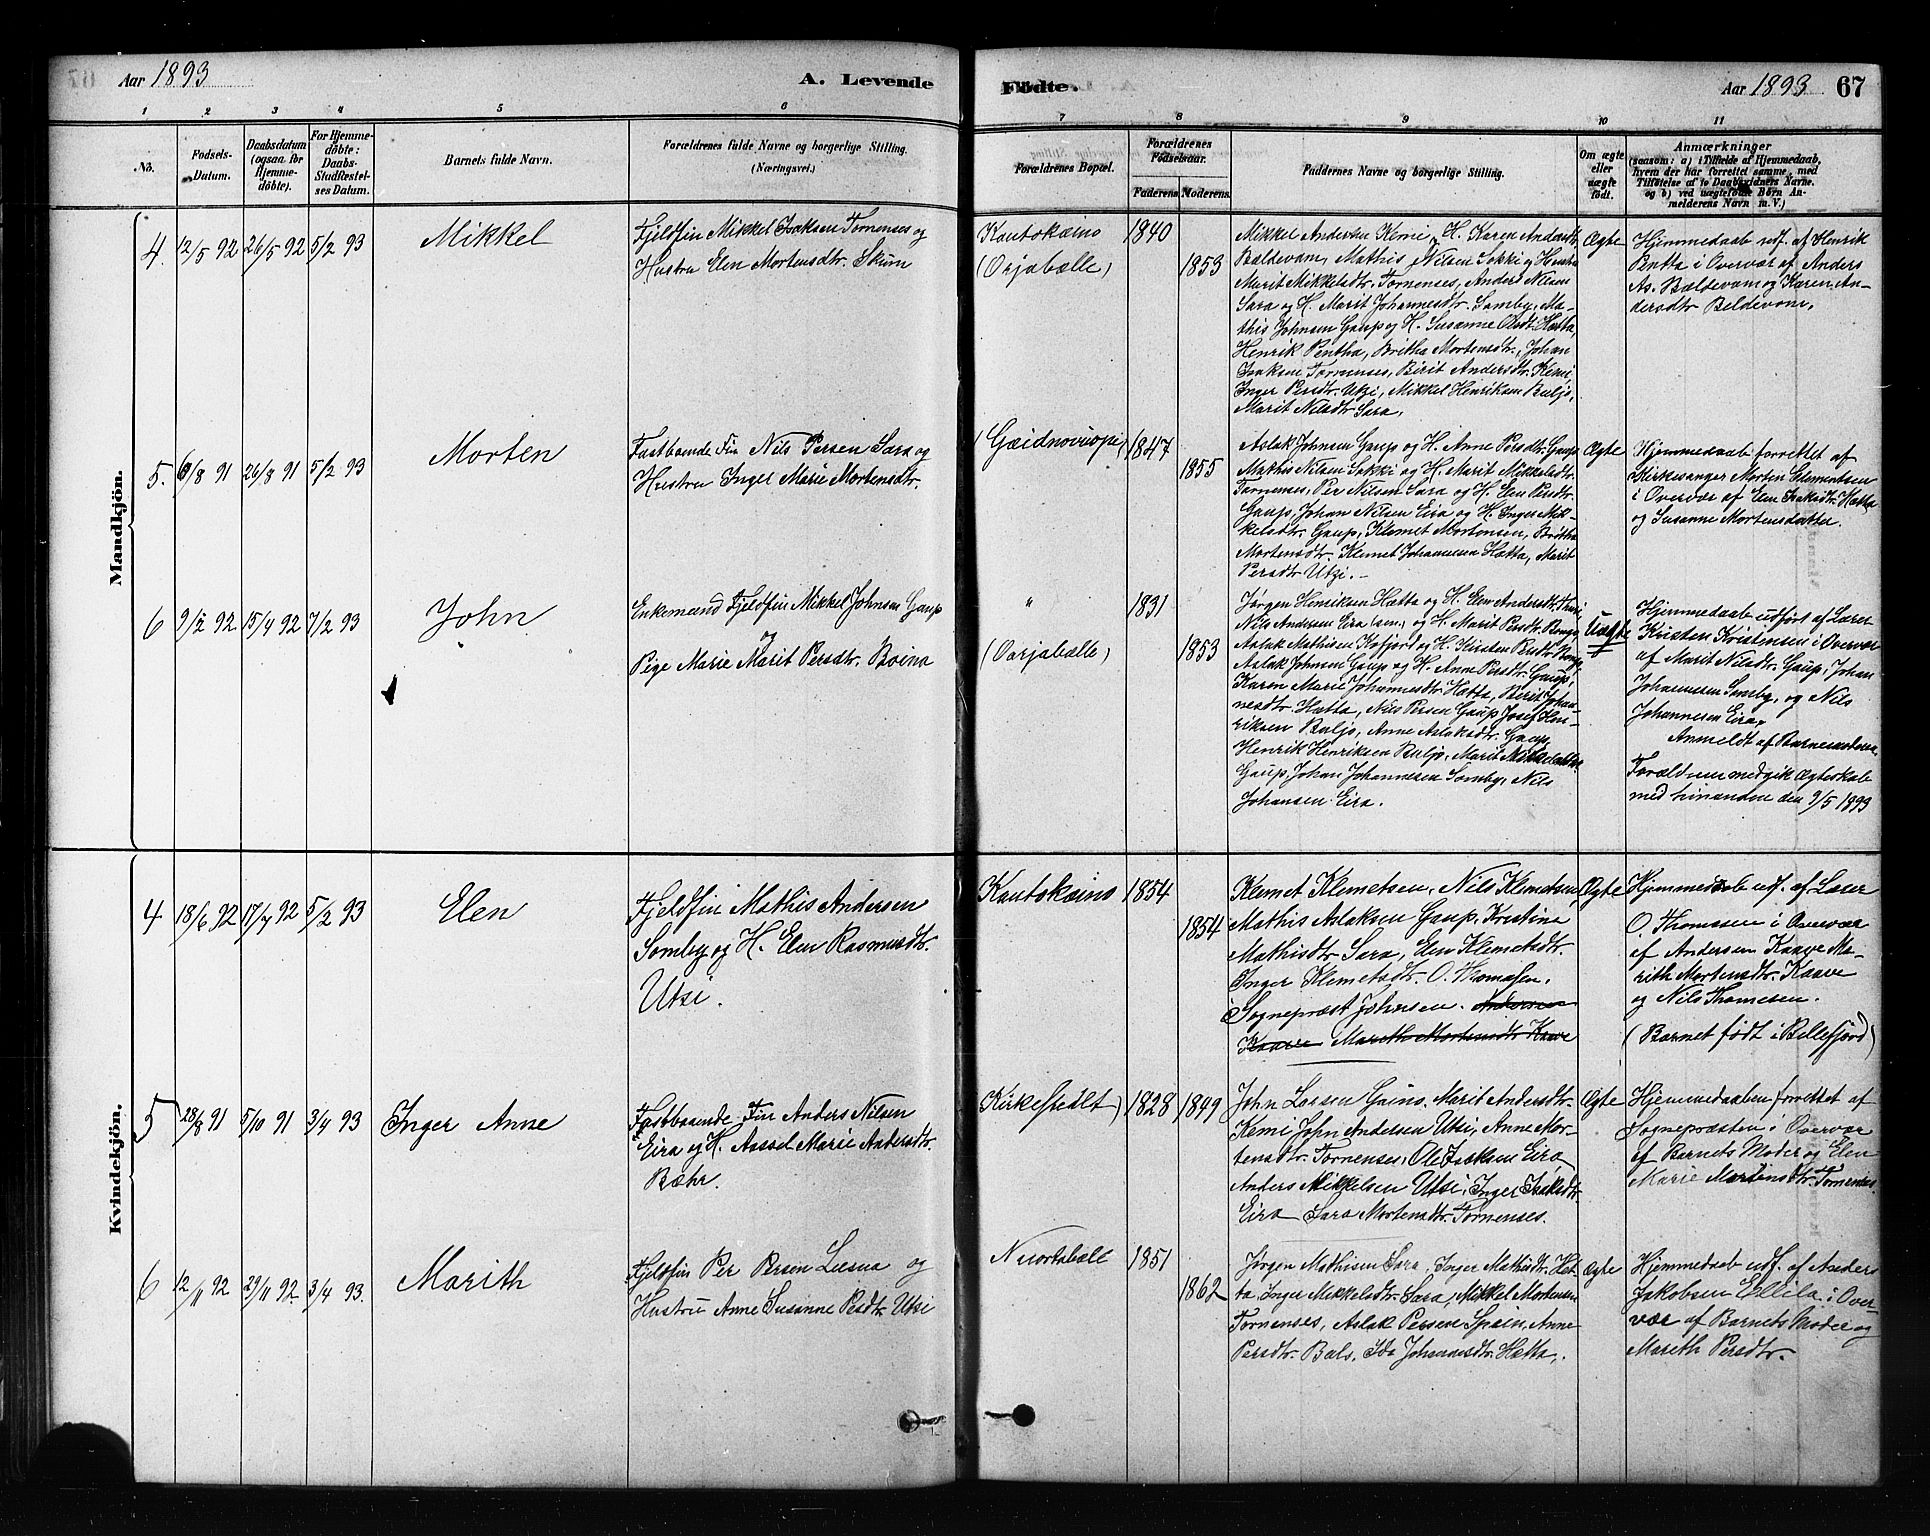 67
Aar 1893
A. Levende
1
2
3
4
5
6
No.
Fødsels-
Datum.
Daabsdatum
(ogsaa for
Hjemme-
døbte).
For Hjemme-
døbte:
Daabs-
Stadfæstel-
ses Datum.
Barnets fulde Navn.
Forældrenes fulde Navne og borgerlige Stilling.
(Næringsvei.)
Mandkjön.
4
12/5 92
26/5 92
5/2 93
Mikkel
Fjeldfin Mikkel Isaksen Tornenses og
Hustru Elen Mortensdtr. Skum
5.
6/8 91
26/8 91
5/2 93
Morten
Fastboende Fin Nils Persen Sara og
Hustru Inger Marie Mortensdtr.
6
9/2 92
15/4 92
7/2 93
John
Enkemand Fjeldfin Mikkel Johnsen Gaup
og
Pige Marie Marit Persdtr. Boine
Kvindekjön.
4
18/6 92
17/7 92
5/2 93
Elen
Fjeldfin Mathis Andersen
Somby og H. Elen Rasmusdtr.
Utsi.
5
28/8 91
5/10 91
3/4 93
Inger Anne
Fastboende Fin Anders Nilsen
Eira og H. Aassel Marie Andersdtr.
Bæhr.
6
12/11 92
29/11 92.
3/4 93.
Marith
Fjeldfin Per Persen og
Hustru Anne Susanne Persdtr. Utsi
Fødte.
Aar 1893
67
7
8
9
10
11
Forældrenes Bopæl.
Forældrenes
Fødselsaar.
Faderens.
Moderens.
Faddernes Navne og borgerlige Stilling.
Om ægte
eller
uægte
født.
Anmærkninger
(saasom: a) i Tilfælde af Hjemmedaab,
hvem der har forrettet samme, med
Tilføielse af to Daabsvidners Navne.
og b) ved uægtefødte Børn An-
melderens Navn m. V.)
Kautokæino
(Orjabælle)
1840
1853
Mikkel Andersen Kemi og H. Karen Andersdtr.
Bældevam, Mathis Nilsen Sokki og Hustru
Marit Mikkelsdtr. Tornenses, Anders Nilsen
Sara og H. Marit Johannesdtr. Somby, Ma-
this Johnsen Gaup og H. Susanne Olsdt. Hætta,
Henrik Pentha, Britha Mortensdtr., Johan
Isaksen Tornenses, Birit Andersdtr. Kemi
Inger Persdtr. Utzi, Mikkel Henriksen Buljo,
Marit Nilsdtr. Sara.
Ægte
Hjemmedaab udf. af Henrik
Pentta i Overvær af Anders
As. Bældevam og Karen An-
dersdtr Beldevam.
(Gæidnovuopi)
1847
1855
Aslak Johnsen Gaup og H. Anne Persdtr. Gaup
Mathis Nilsen Sokki og H. Marit Mikkelsdtr.
Tornenses, Per Nilsen Sara og H. Elen Persdtr.
Gaup, Johan Nilsen Eira og H. Inger Mik-
kelsdtr. Gaup, Klemet Mortensen, Britha
Mortensdtr. Klemet Johannesen Hætta, Marit
Persdtr Utzi. —
Ægte
Hjemmedaab forrettet af
Kirkesanger Morten Clementsen
i Overvær af Elen Isaksdtr. Hætta
og Susanne Mortensdatter.
"
(Oarjabælle)
1831
1853
Jørgen Henriksen Hætta og H. Elen Andersdtr.
Nils Andersen Eira (sen.) og H. Marit Persdtr. Bongo
Aslak Mathisen Kofjord og H. Kirsten
Aslak Johnsen Gaup og H. Anne Persdtr. Gaup,
Karen Marie Johannesdtr. Hætta, Berit Johan-
nesdtr Hætta, Nils Persen Gaup, Josef Hen-
riksen Buljo, Anne Aslaksdtr. Gaup,
Henrik Henriksen Buljo, Marit Mikkelsdtr.
Gaup, Johan Johannesen Somby, Nils
Johansen Eira.
Uægte
Hjemmedaab udført af Lærer
Kristen Kristensen i Overvær
af Marit Nilsdtr. Gaup, Johan
Johannesen Somby, og Nils
Johannesen Eira,
Anmeldt af Barnemoderen
Forældrene indgik Ægteskab
med hinanden den 9/5 1893
Kautokæino
1854
1854
Klemet Klemetsen, Nils Klemetsen
Mathis Aslaksen Gaup, Kristine
Mathisdtr Sara, Elen Klemetsdtr.
Inger Klemetsdtr. O. Thomasen.
Sognepræst Johnsen. Andersen
Kaave Mareth Mortensdtr Kaave
Ægte
Hjemmedaab udf. af Lærer
O. Thomasen i Overvær
af Andersen Kaave Ma-
rith Mortensdtr. Kaave
og Nils Thomesen.
(Barnet født i Billefjord)
Kirkestedet)
1828
1849
John Larsen Grins. Marit Andersdtr.
Kemi John Andersen Utsi, Anne Mor-
tensdtr. Tornenses, Ole Isaksen Eira
Anders Mikkelsen Utsi, Inger Isaksdtr
Eira Sara Mortensdtr. Tornenses.
Ægte
Hjemmedaaben forrettet af
Sognepræsten i Overvær
af Barnets Moder og Elen
Marie Mortensdtr. Tornenses.
Nuortabæle
1851
1862
Jørgen Mathisen Sara, Inger Mathisdtr. Het-
ta, Inger Mikkelsdtr. Sara, Mikkel Mortensen
Tornenses, Aslak Persen Spein, Anne
Persdtr. Bæls. Ida Johannesdtr. Hætta.
Ægte
Hjemmedaab udf. af Anders
Jakobsen Ellila i Over-
vær af Barnets Moder og
Mareth Persdtr.